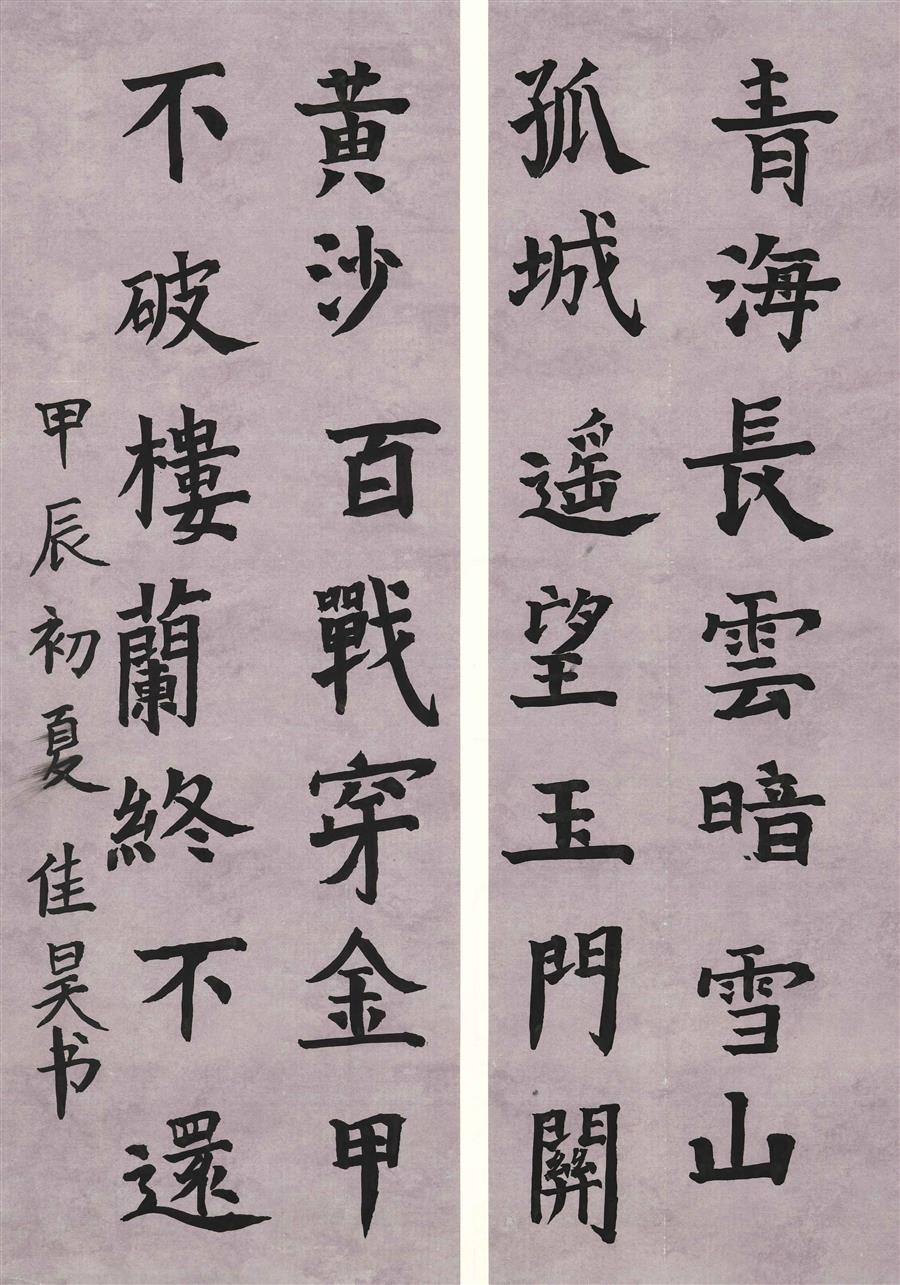 青海長雲暗雪山
孤城遥望玉門關
黄沙百戰穿金甲
不破樓蘭終不還
甲辰初夏 佳昊书